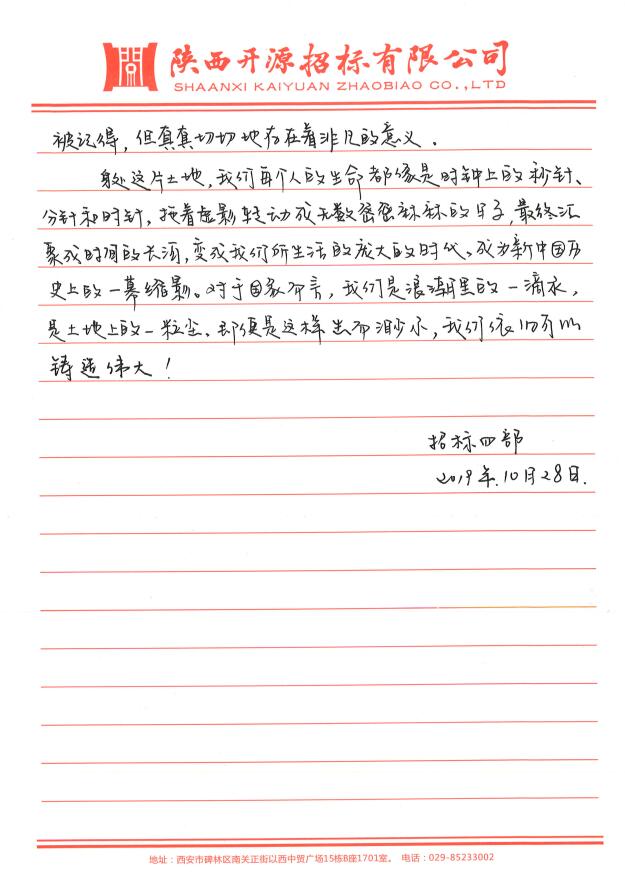 陕西开源招标有限公司
SHAANXI KAIYUAN ZHAOBIAO CO.,LTD
被记得，但真真切切地存在着非凡的意义．
身处这片土地，我们每个人的生命都像是时钟上的秒针、
分针和时针，拖着虚影转动成无数密密麻麻的日子，最终汇
聚成时间的长河，变成我们所生活的庞大的时代、成为新中国历
史上的一幕缩影。对于国家而言，我们是浪潮里的一滴水，
是土地上的一粒尘、即便是这样 而渺小，我们依旧可以
铸造伟大！
招标四部
2019年.10月28日.
地址：西安市碑林区南关正街以西中贸广场15栋B座1701室。 电话：029-85233002